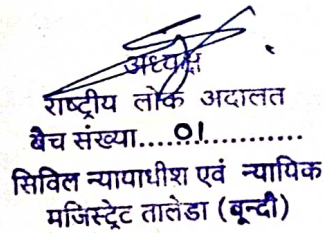 अध्यक्ष
राष्ट्रीय लोक अदालत
बैच संख्या.....01..................
सिविल न्यायाधीश एवं न्यायिक
मजिस्ट्रेट तालेडा (बून्दी)